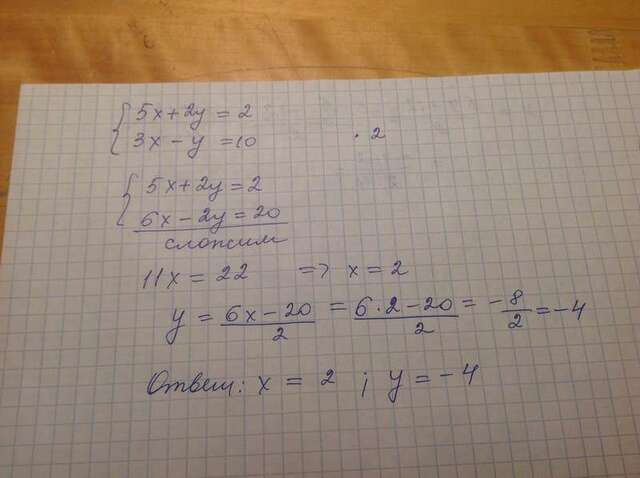 5x+2y = 2
3x - y = 10 · 2
5x+2y = 2
6x - 2y = 20
сложим
11x = 22 => x = 2
y = (6x - 20)/2 = (6·2 - 20)/2 = -8/2 = -4
Ответ: x = 2 ; y = -4